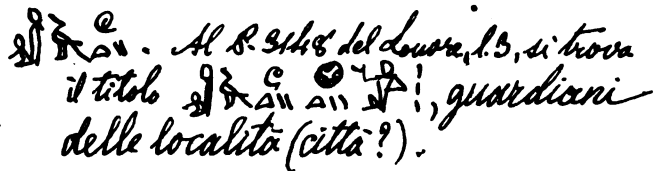 . Al P. 3148 del Louvre, l. 3, si trova
il titolo , guardiani
delle località (città?).